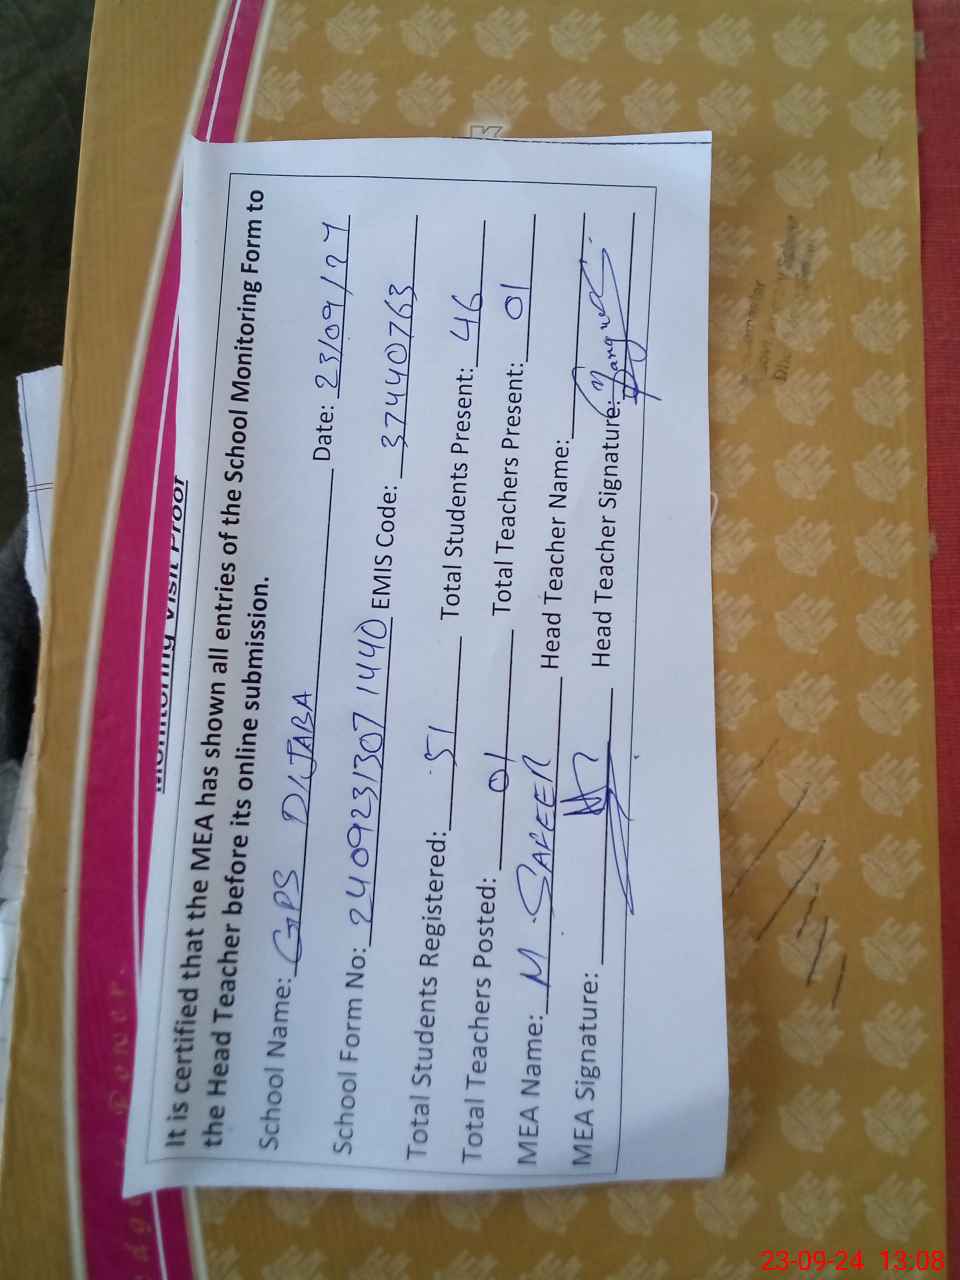 Monitoring Visit Proof
It is certified that the MEA has shown all entries of the School Monitoring Form to
the Head Teacher before its online submission.
School Name: GPS DHJABA Date: 23/09/24
School Form No: 24092313071440 EMIS Code: 37440763
Total Students Registered: 51 Total Students Present: 46
Total Teachers Posted: 01 Total Teachers Present: 01
MEA Name: M SAFEER Head Teacher Name:
MEA Signature: Head Teacher Signature:
23-09-24 13:08